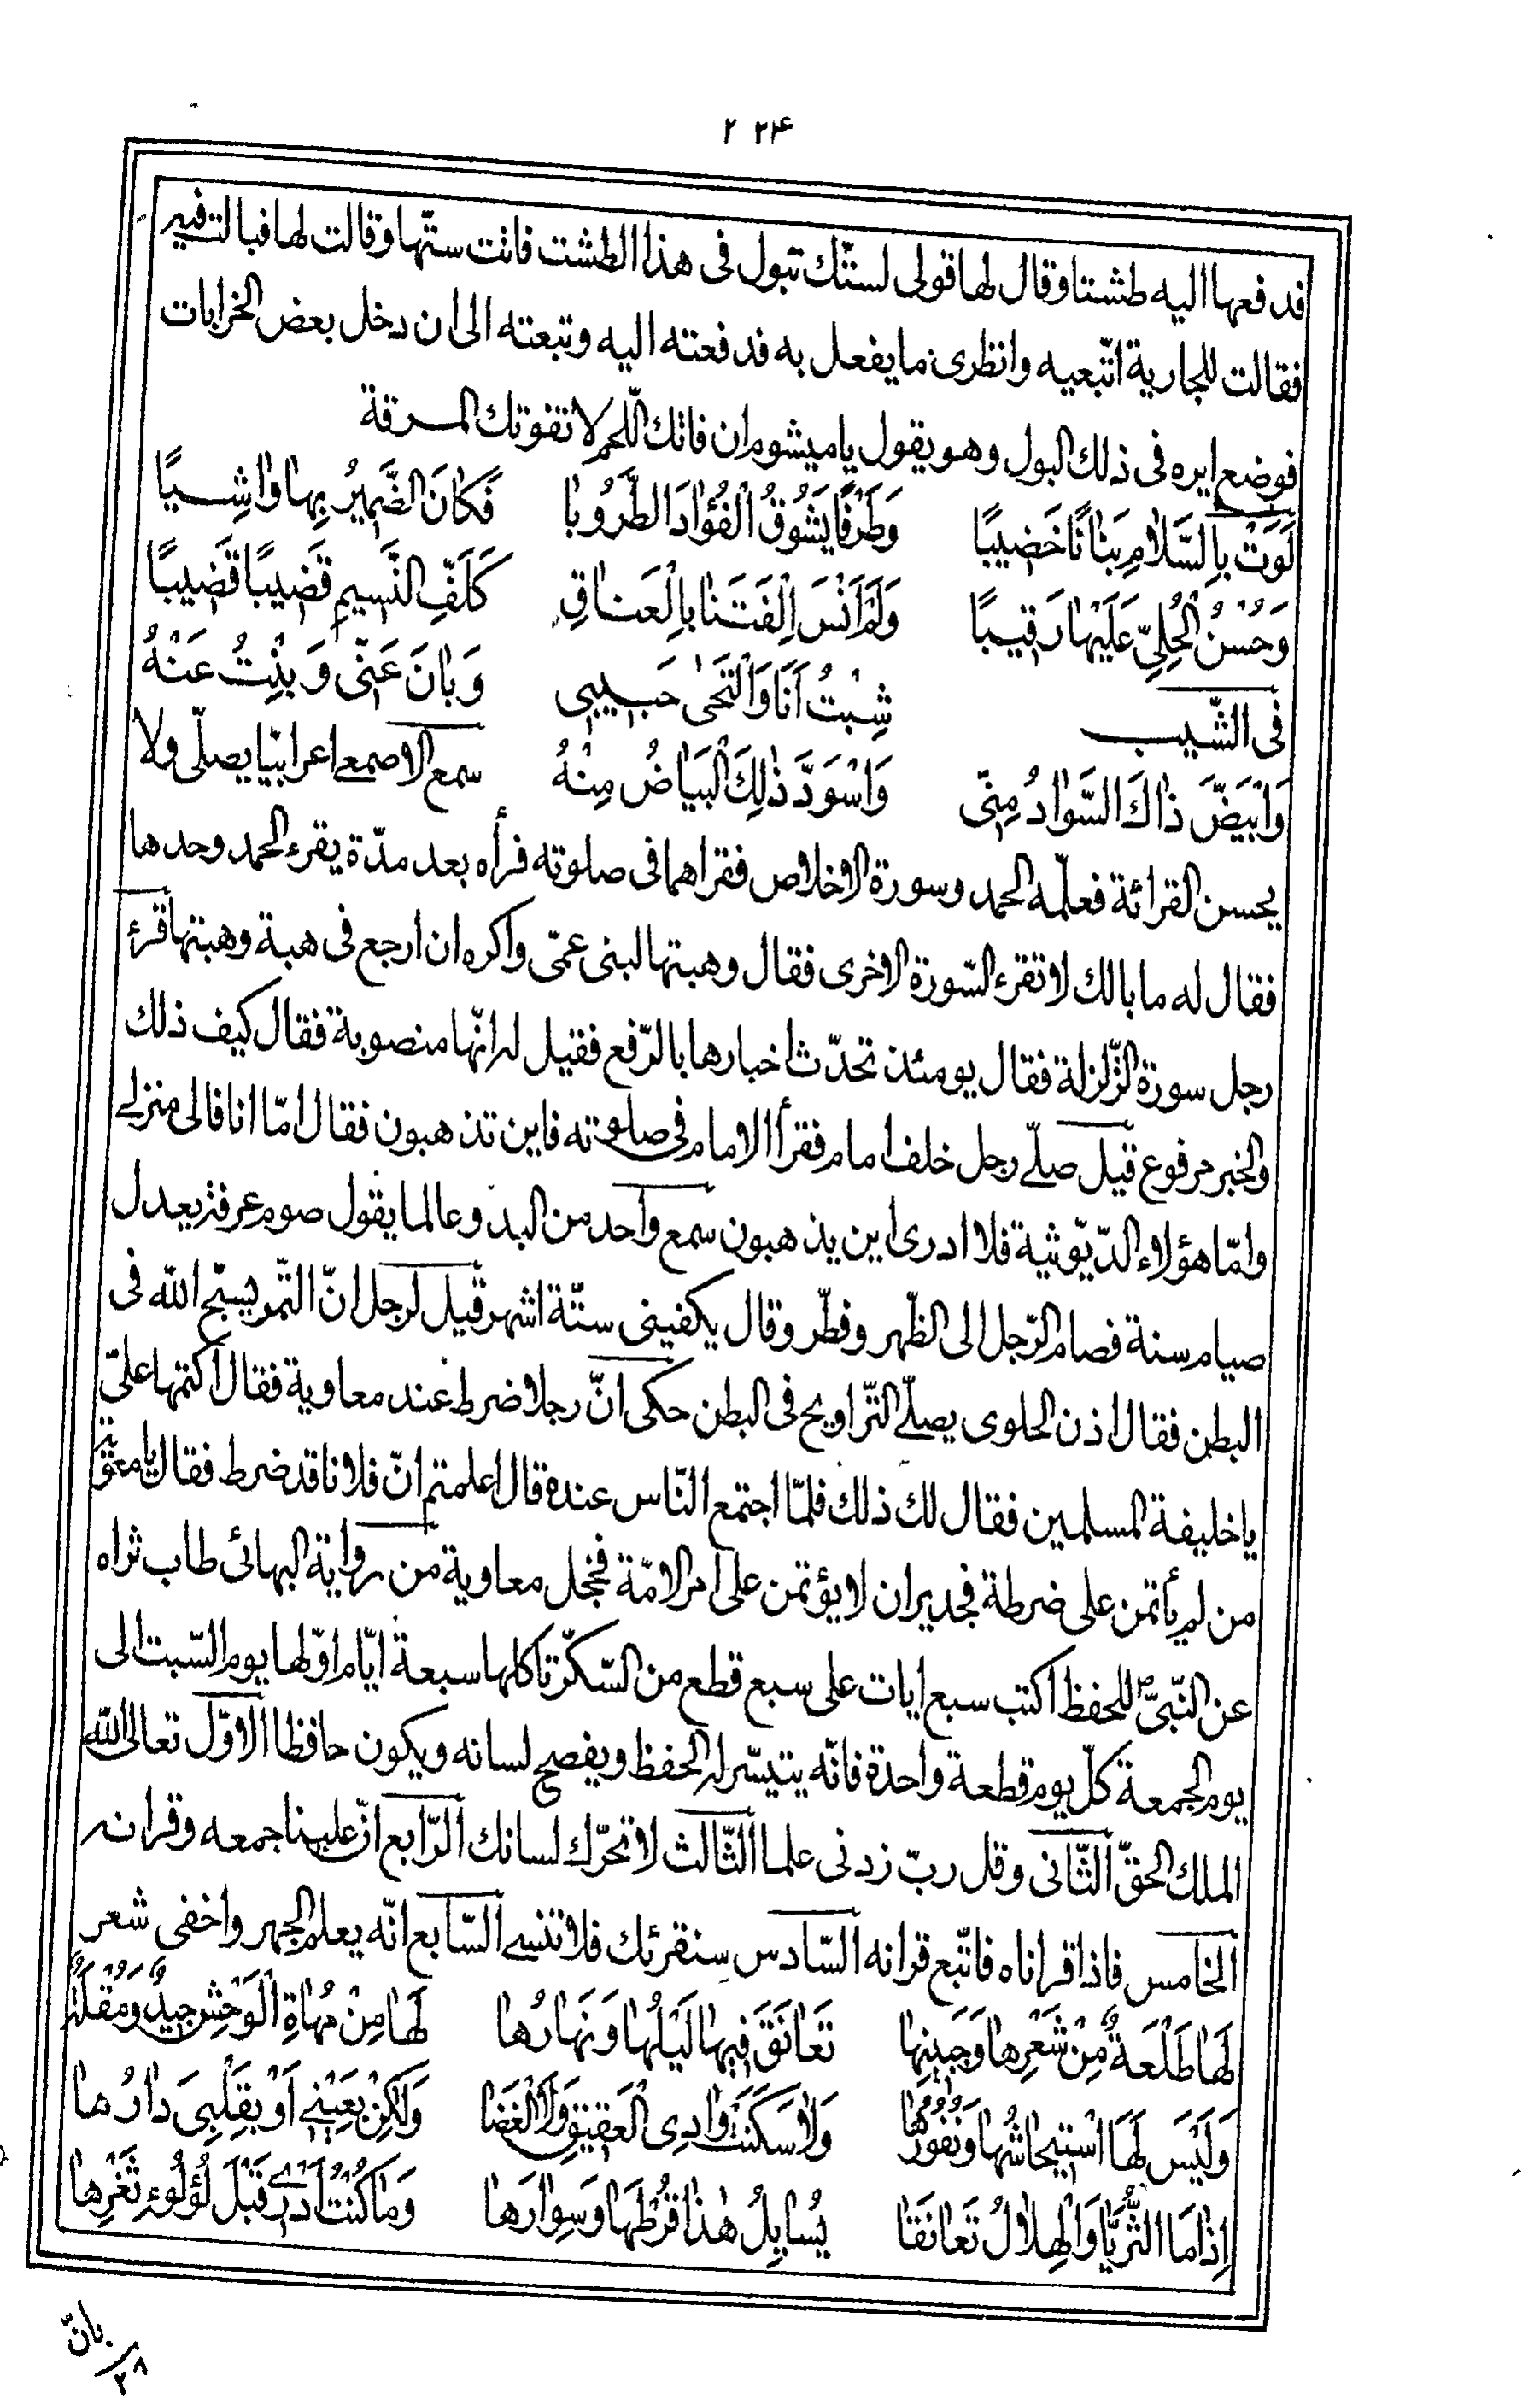 ۲۳۴ ۲
فدفعها اليه طشتا وقال لها قولى لستّك تبول فى هذا الطشت فاتت ستّها وقالت لها فبالت فيه
فقالت للجارية اتّبعيه وانظرى ما يفعل به فدفعته اليه وتبعته الى ان دخل بعض الخرابات
فوضع ايره فى ذلك البول وهو يقول ياميشوم ان فاتك اللّحم لا تفوتك المرقة
لَوَتْ بِالسَّلامِ بَنانًا خَضيبًا وَطَرْفًا يَشُوقُ الْفُؤادَ الطَّرُوبا فَكانَ الضَّميرُ بِها واشِيًا
وَحُسْنُ الْحُلِىِّ عَلَيْها رَقيبًا وَلَمْ اَنْسَ اِلْفَتَنا بِالْعَناقِ كَلَفِّ النَّسيمِ قَضيبًا قَضيبًا
فى الشّيب شِبْتُ اَنَا وَالْتَحىٰ حَبيبى وَبانَ عَنّى وَبِنْتُ عَنْهُ
وَابْيَضَّ ذاكَ السَّوادُ مِنّى وَاسْوَدَّ ذلِكَ الْبَياضُ مِنْهُ سمع الاصمعى اعرابيّا يصلّى ولا
يحسن القرائة فعلّمه الحمد وسورة الاخلاص فقراهما فى صلوته فرأه بعد مدّة يقرء الحمد وحدها
فقال له ما بالك لا تقرء السّورة الاخرى فقال وهبتها لبنى عمّى واكره ان ارجع فى هبة وهبتها قرء
رجل سورة الزّلزلة فقال يومئذ تحدّث اخبارها بالرّفع فقيل له انّها منصوبة فقال كيف ذلك
والخبر مرفوع قيل صلّى رجل خلف امام فقرأ الامام فى صلوته فاين تذهبون فقال امّا انا فالى منزلى
وامّا هؤلاء الدّيّوثية فلا ادرى اين يذهبون سمع واحد من البدو عالما يقول صوم عرفة يعدل
صيام سنة فصام الرّجل الى الظّهر وفطّر وقال يكفينى ستّة اشهر قيل لرجل انّ التّمر يسبّح الله فى
البطن فقال اذن الحلوى يصلّى التّراويح فى البطن حكى انّ رجلا ضرط عند معاوية فقال اكتمها علىّ
يا خليفة المسلمين فقال لك ذلك فلمّا اجتمع النّاس عنده قال اعلمتم انّ فلانا قد ضرط فقال يا معوية
من لم يأتمن على ضرطة فجدير ان لا يؤتمن على امر الامّة فخجل معاوية من رواية البهائى طاب ثراه
عن النّبىّ ص للحفظ اكتب سبع ايات على سبع قطع من السّكّر تاكلها سبعة ايّام اوّلها يوم السّبت الى
يوم الجمعة كلّ يوم قطعة واحدة فانّه يتيسّر له الحفظ ويفصح لسانه ويكون حافظا الاوّل تعالى الله
الملك الحقّ الثّانى وقل ربّ زدنى علما الثّالث لا تحرّك لسانك الرّابع انّ علينا جمعه وقرانه
الخامس فاذا قراناه فاتّبع قرانه السّادس سنقرئك فلا تنسى السّابع انّه يعلم الجهر واخفى شعر
لَها طَلْعَةٌ مِنْ شَعْرِها وَجَبينِها تَعانَقَ فيها لَيْلُها وَنَهارُها لَها مِنْ مُهاةِ الْوَحْشِ جيدٌ وَمُقْلَةٌ
وَلَيْسَ لَها اسْتيحاشُها وَنُفُورُها وَلا سَكَنَتْ وادِى الْعَقيقِ وَلَا الْغَضا وَلكِنْ بِعَيْنى اَوْ بِقَلْبى دارُها
اِذا مَا الثُّرَيّا وَالْهِلالُ تَعانَقا يُسايِلُ هذا قُرْطَها وَسِوارَها وَما كُنْتُ اَدْرى قَبْلَ لُؤْلُوءِ ثَغْرِها
بانّ
۲۸